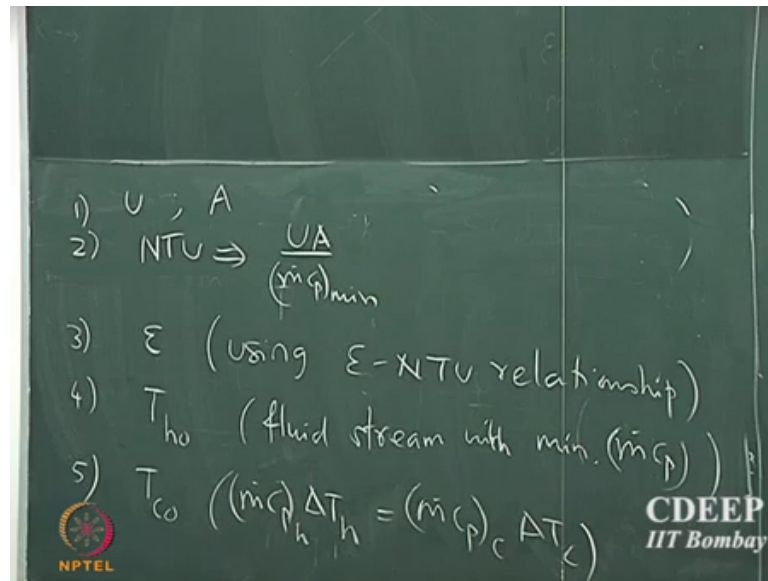 1) U ; A
2) NTU ⇒ UA / (ṁcp)min
3) ε (using ε-NTU relationship)
4) Tho (fluid stream with min. (ṁcp))
5) Tco ((ṁcp)h ΔTh = (ṁcp)c ΔTc)
CDEEP
IIT Bombay
NPTEL